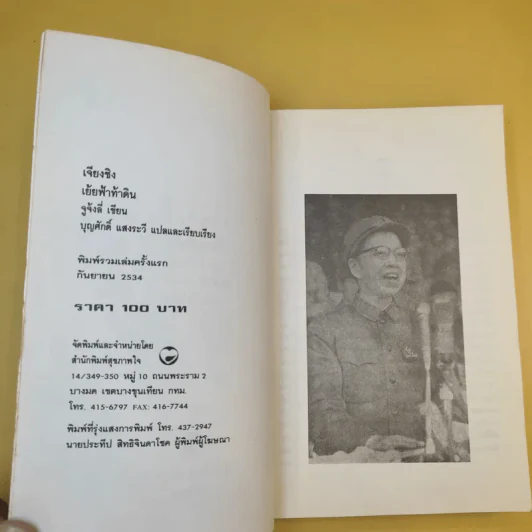 เจียงชิง
เย้ยฟ้าท้าดิน
จูจ้งลี่ เขียน
บุญศักดิ์ แสงระวี แปลและเรียบเรียง
พิมพ์รวมเล่มครั้งแรก
กันยายน 2534
ราคา 100 บาท
จัดพิมพ์และจำหน่ายโดย
สำนักพิมพ์สุขภาพใจ
14/349-350 หมู่ 10 ถนนพระราม 2
บางมด เขตบางขุนเทียน กทม.
โทร. 415-6797 FAX: 416-7744
พิมพ์ที่รุ่งแสงการพิมพ์ โทร. 437-2947
นายประทีป สิทธิจินดาโชค ผู้พิมพ์ผู้โฆษณา